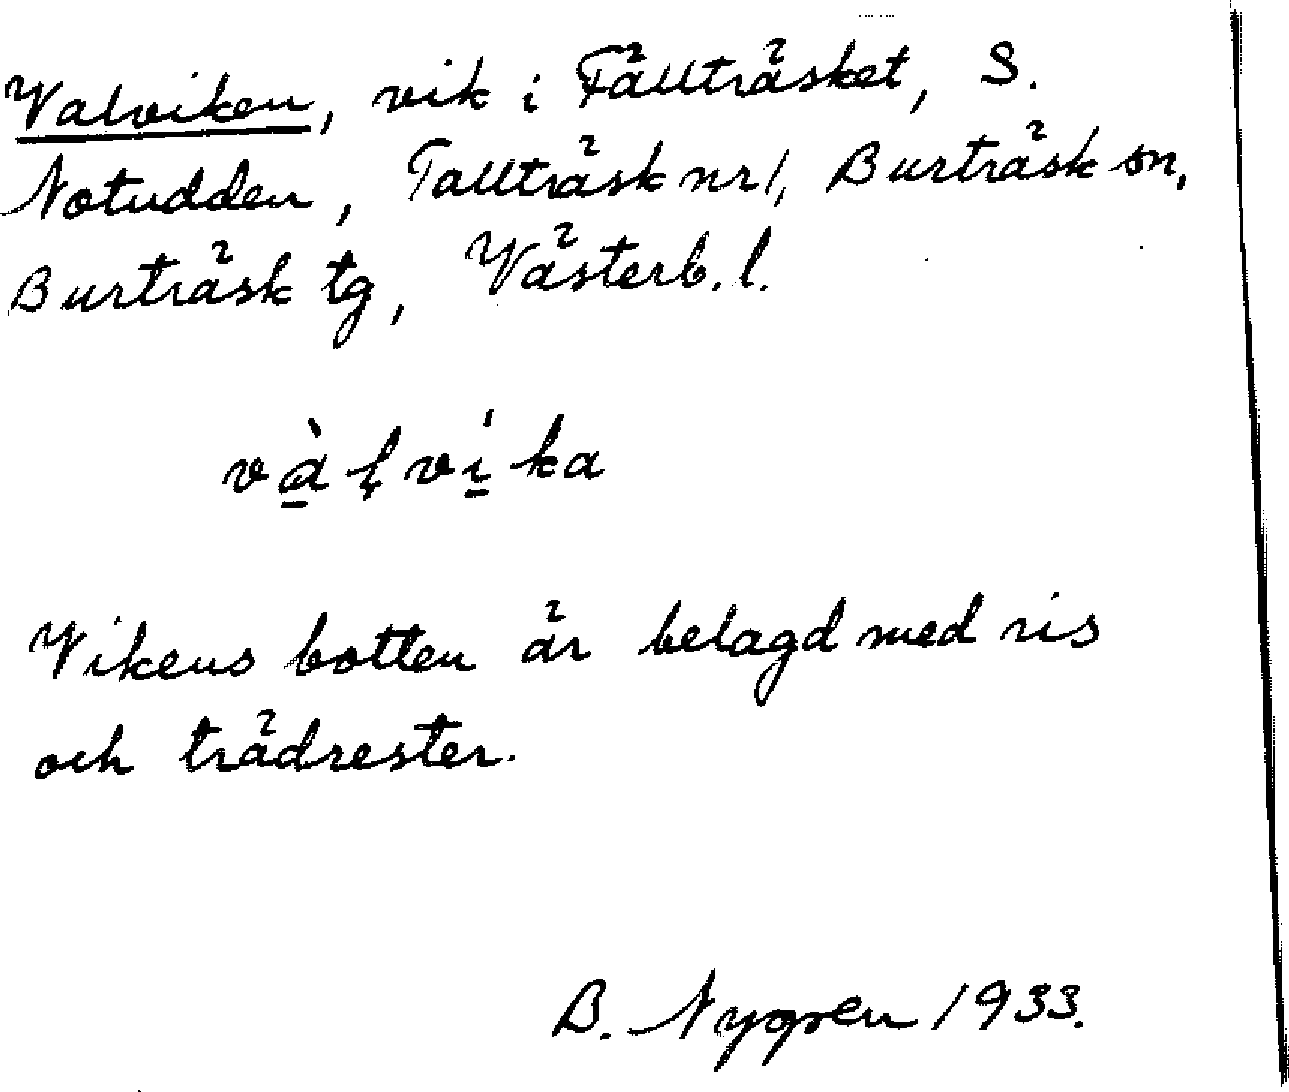 Valviken, vik i Fällträsket, S.
Notudden, Tallträsk nr 1, Burträsk sn,
Burträsk tg, Västerb. l.
vàḷvíka
Vikens botten är belagd med ris
och trädrester.
B. Nygren 1933.